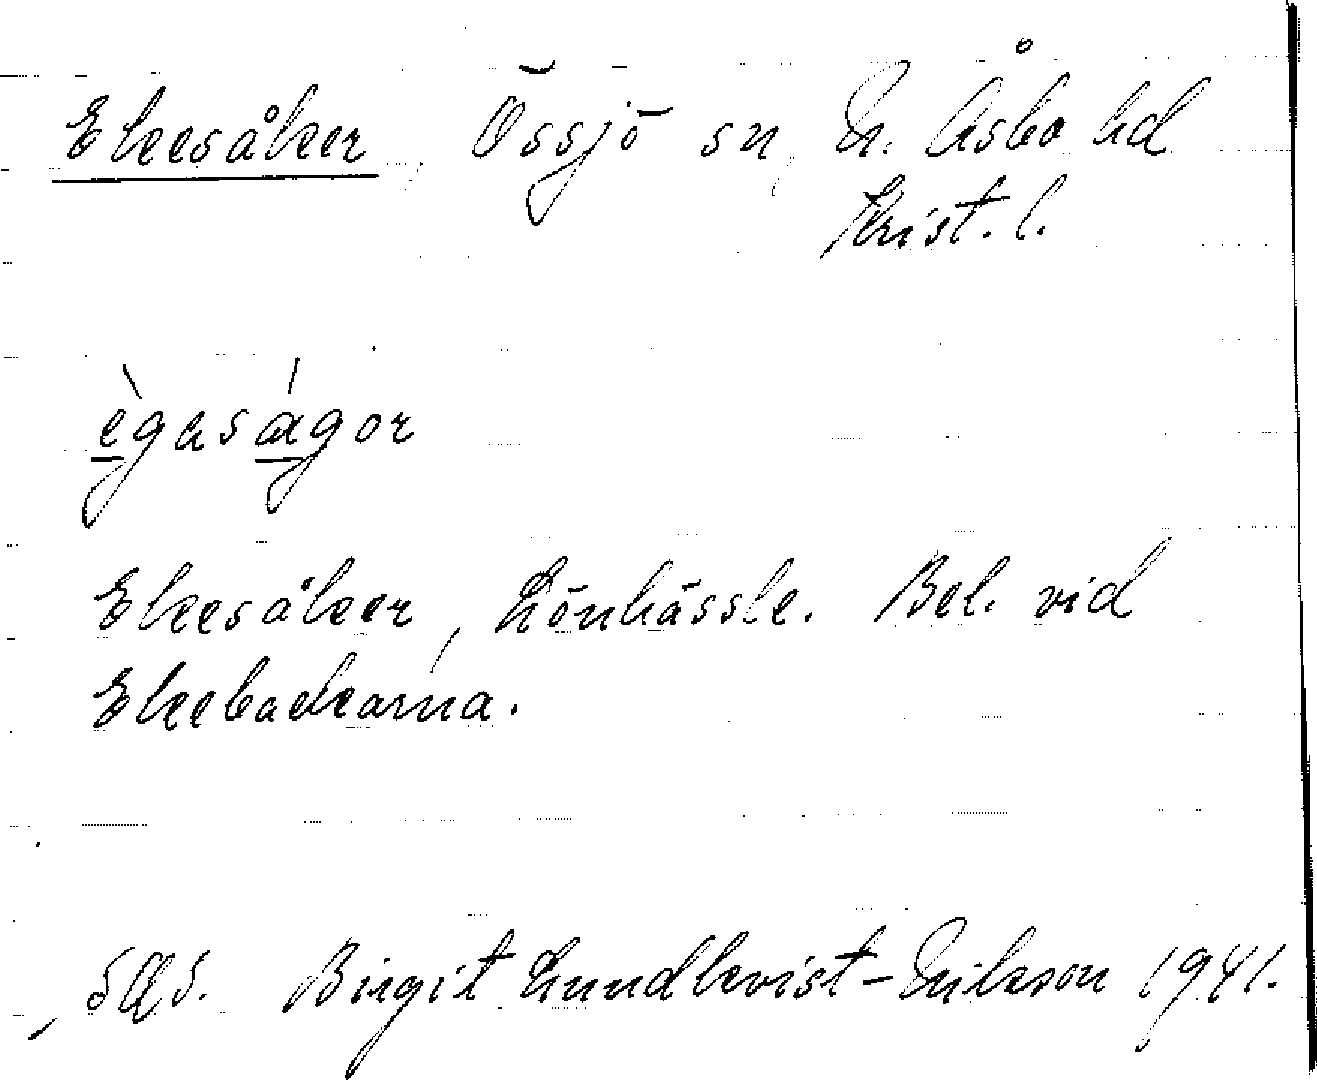 Ekesåker, Össjö sn, N. Åsbo hd
Krist. l.
ègaságor
Ekesåker, Lönhässle. Bel. vid
Ekebackarna.
Birgit Lundkvist-Erikson 1941.